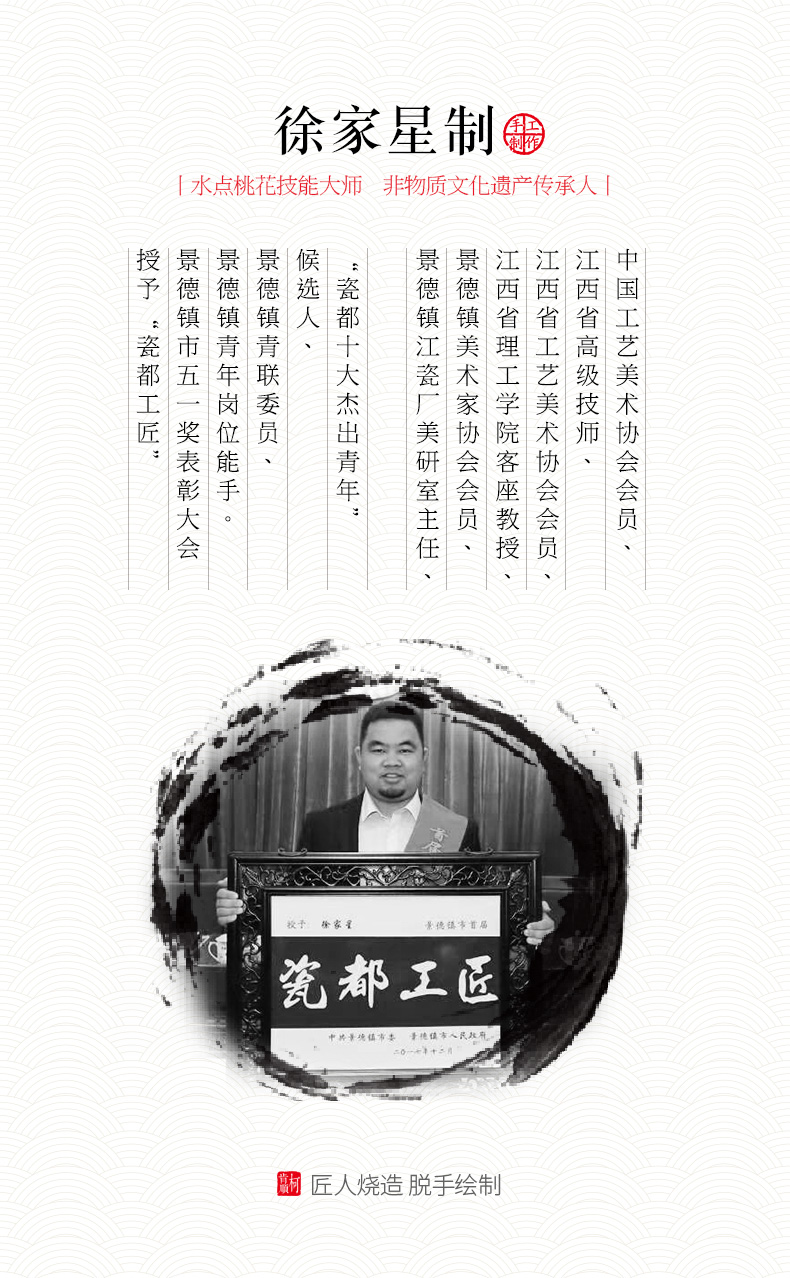 徐家星制
手工制作
丨水点桃花技能大师 非物质文化遗产传承人丨
中国工艺美术协会会员、
江西省高级技师、
江西省工艺美术协会会员、
江西省理工学院客座教授、
景德镇美术家协会会员、
景德镇江瓷厂美研室主任、
“瓷都十大杰出青年”
候选人、
景德镇青联委员、
景德镇青年岗位能手。
景德镇市五一奖表彰大会
授予“瓷都工匠”
授予 徐家星 景德镇市首届
瓷都工匠
中共景德镇市委 景德镇市人民政府
二〇一七年十二月
匠人烧造 脱手绘制